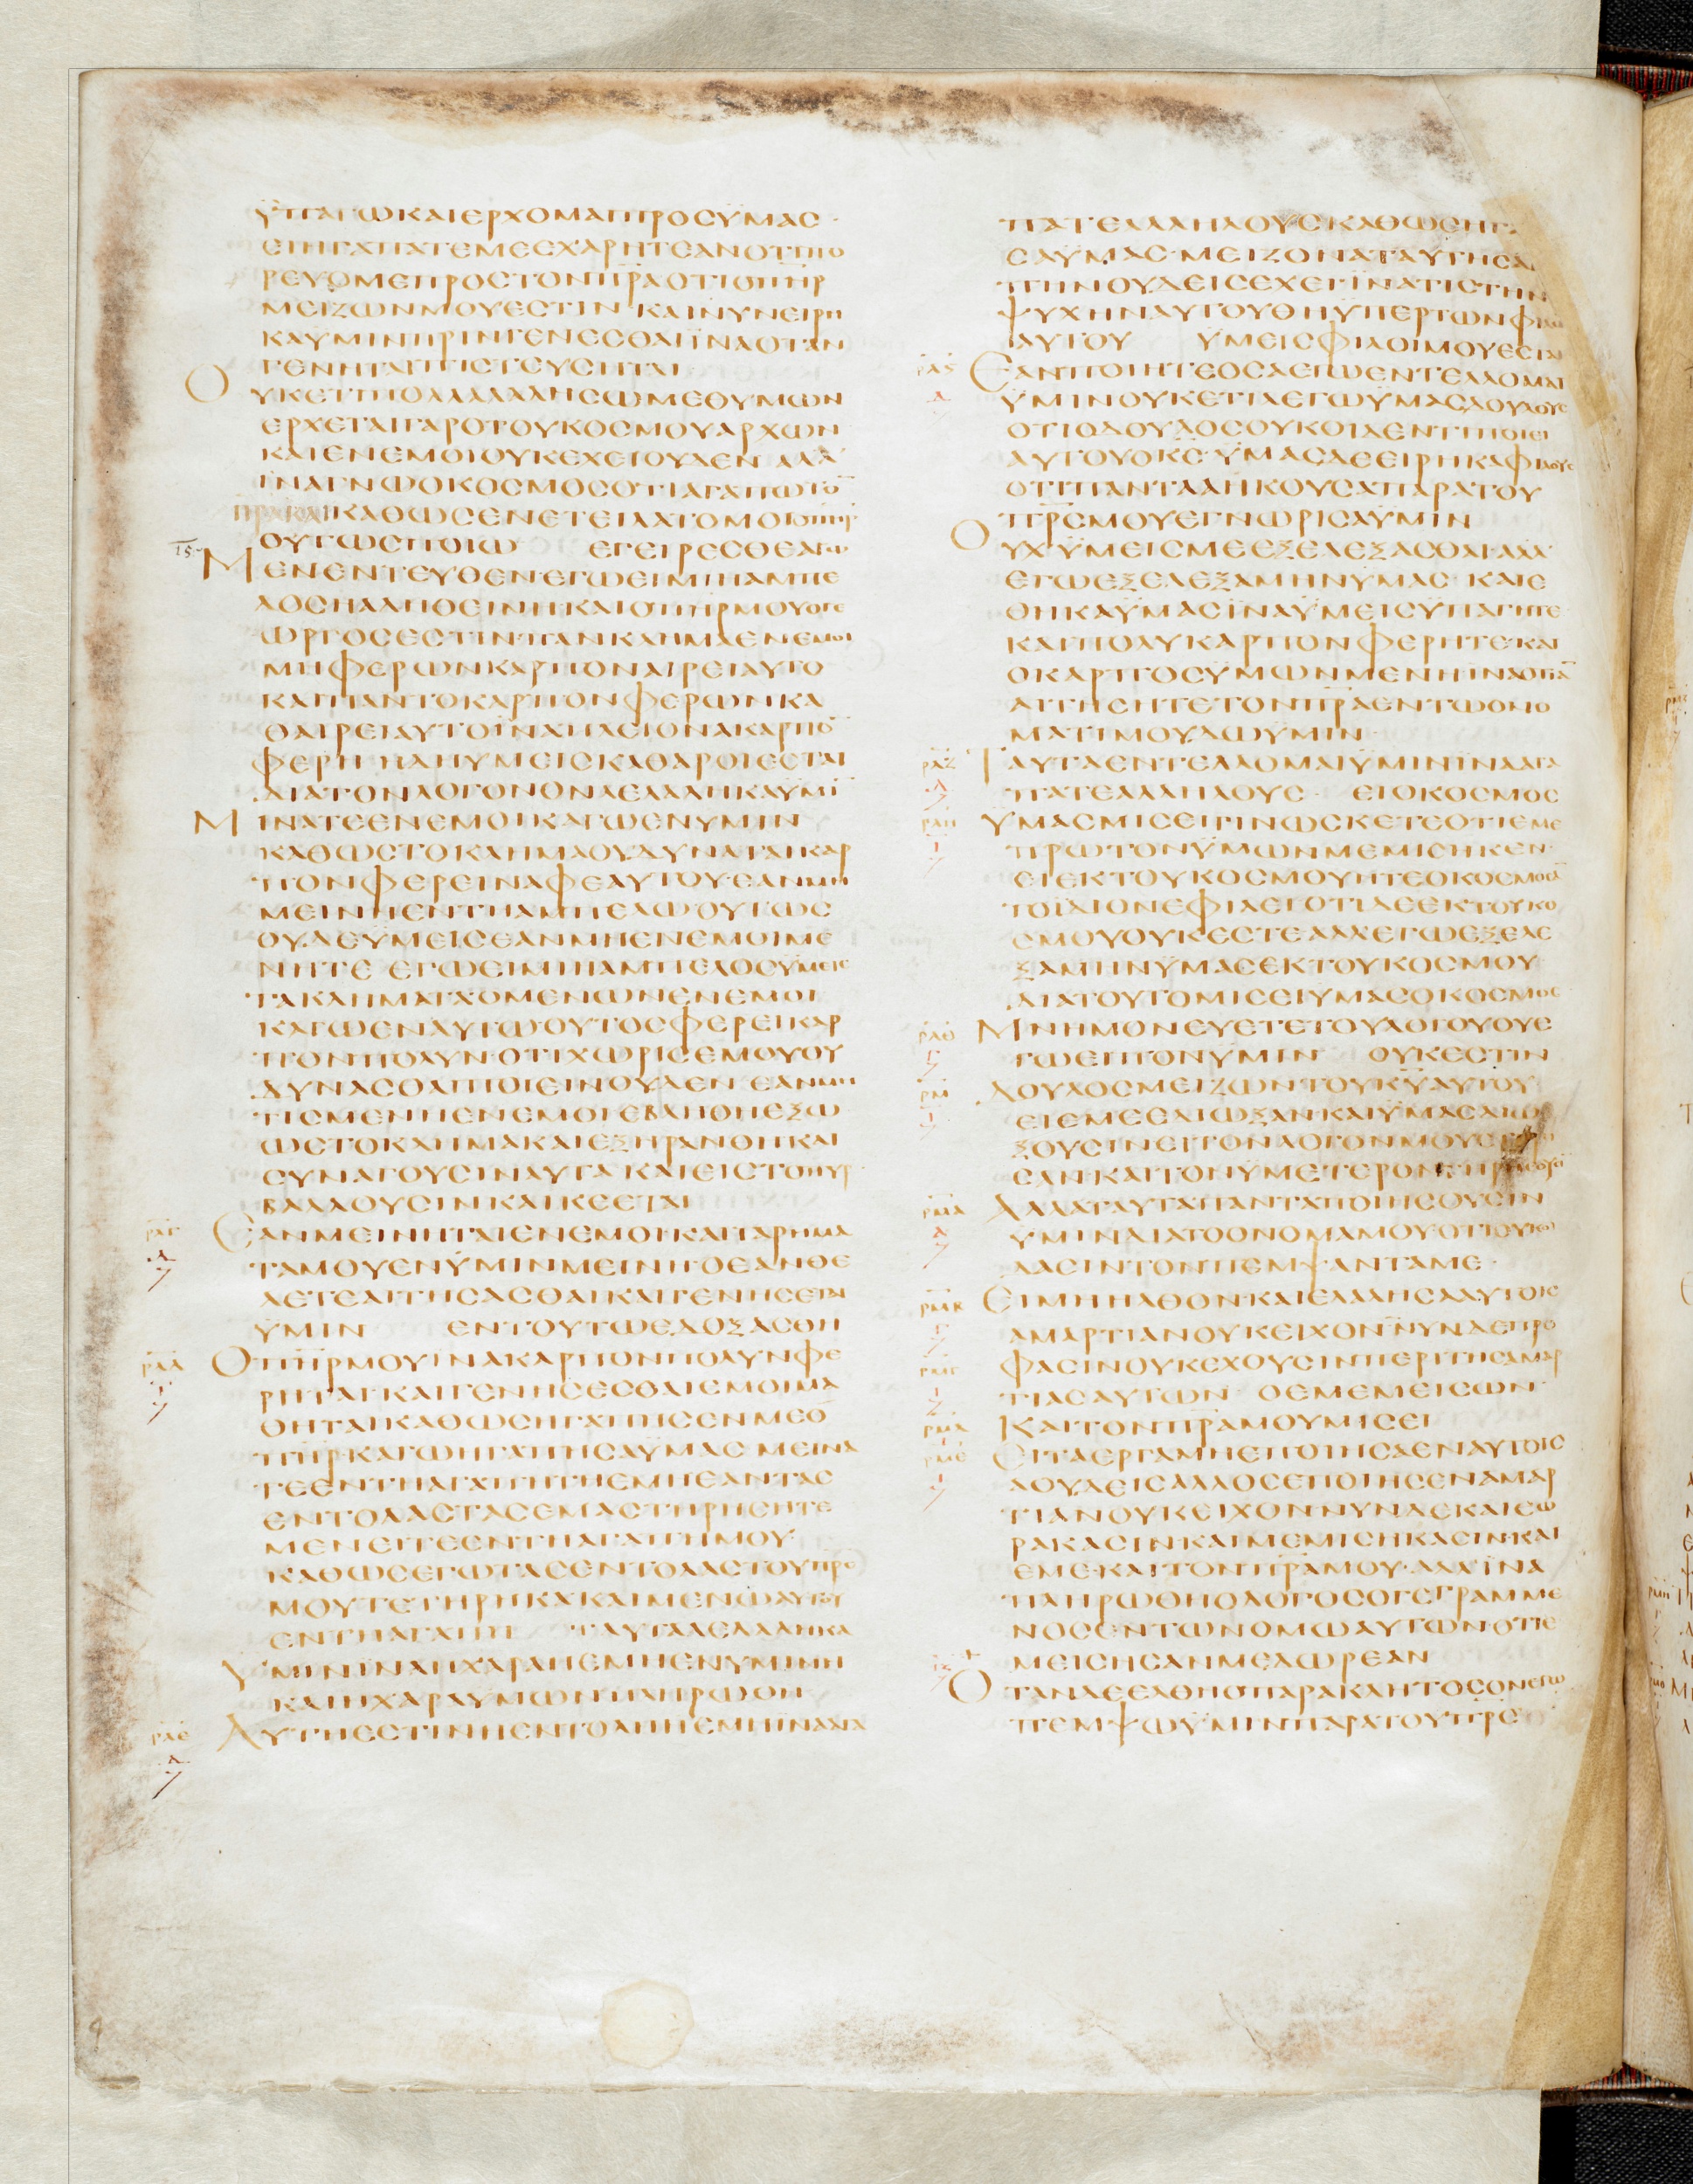 ΫΠΑΓΩΚΑΙΕΡΧΟΜΑΙΠΡΟΣΫΜΑΣ·
ΕΙΗΓΑΠΑΤΕΜΕΕΧΑΡΗΤΕΑΝΟΤΙΠΟ
ΡΕΥΟΜΕΠΡΟΣΤΟΝΠΡΑΟΤΙΟΠΗΡ
ΜΕΙΖΩΝΜΟΥΕΣΤΙΝ ΚΑΙΝΥΝΕΙΡΗ
ΚΑΫΜΙΝΠΡΙΝΓΕΝΕΣΘΑΙΪΝΑΟΤΑΝ
ΓΕΝΗΤΑΙΠΙΣΤΕΥΣΗΤΑΙ
ΟΥΚΕΤΙΠΟΛΛΑΛΑΛΗΣΩΜΕΘΥΜΩΝ
ΕΡΧΕΤΑΙΓΑΡΟΤΟΥΚΟΣΜΟΥΑΡΧΩΝ
ΚΑΙΕΝΕΜΟΙΟΥΚΕΧΕΙΟΥΔΕΝ ΑΛΛ
ΪΝΑΓΝΩΟΚΟΣΜΟΣΟΤΙΑΓΑΠΩΤΟ̅
ΠΡΑΚΑΙΚΑΘΩΣΕΝΕΤΕΙΛΑΤΟΜΟΙΟΠΗΡ
ΟΥΤΩΣΠΟΙΩ ΕΓΕΙΡΕΣΘΕΑΓΩ
15
ΜΕΝΕΝΤΕΥΘΕΝ·ΕΓΩΕΙΜΙΗΑΜΠΕ
ΛΟΣΗΑΛΗΘΕΙΝΗ·ΚΑΙΟΠΗΡΜΟΥΟΓΕ
ΩΡΓΟΣΕΣΤΙΝ·ΠΑΝΚΛΗΜΑΕΝΕΜΟΙ
ΜΗΦΕΡΩΝΚΑΡΠΟΝΑΙΡΕΙΑΥΤΟ
ΚΑΙΠΑΝΤΟΚΑΡΠΟΝΦΕΡΩΝΚΑ
ΘΑΙΡΕΙΑΥΤΟΪΝΑΠΛΕΙΟΝΑΚΑΡΠΟ̅
ΦΕΡΗ ΗΔΗΥΜΕΙΣΚΑΘΑΡΟΙΕΣΤΑΙ
ΔΙΑΤΟΝΛΟΓΟΝΟΝΛΕΛΑΛΗΚΑΫΜΙ̅
ΜΙΝΑΤΕΕΝΕΜΟΙ·ΚΑΓΩΕΝΥΜΙΝ
ΚΑΘΩΣΤΟΚΛΗΜΑΟΥΔΥΝΑΤΑΙΚΑΡ
ΠΟΝΦΕΡΕΙΝΑΦΕΑΥΤΟΥ·ΕΑΝΜΗ
ΜΕΙΝΗΕΝΤΗΑΜΠΕΛΩ·ΟΥΤΩΣ
ΟΥΔΕΫΜΕΙΣΕΑΝΜΗΕΝΕΜΟΙΜΕ
ΝΗΤΕ ΕΓΩΕΙΜΙΗΑΜΠΕΛΟΣΥΜΕΙΣ
ΤΑΚΛΗΜΑΤΑΟΜΕΝΩΝΕΝΕΜΟΙ
ΚΑΓΩΕΝΑΥΤΩ·ΟΥΤΟΣΦΕΡΕΙΚΑΡ
ΠΟΝΠΟΛΥΝ·ΟΤΙΧΩΡΙΣΕΜΟΥΟΥ
ΔΥΝΑΣΘΑΙΠΟΙΕΙΝΟΥΔΕΝ ΕΑΝΜΗ
ΤΙΣΜΕΝΗΕΝΕΜΟΙ·ΕΒΛΗΘΗΕΞΩ
ΩΣΤΟΚΛΗΜΑΚΑΙΕΞΗΡΑΝΘΗΚΑΙ
ΣΥΝΑΓΟΥΣΙΝΑΥΤΑ ΚΑΙΕΙΣΤΟΠΥΡ
ΒΑΛΛΟΥΣΙΝΚΑΙΚΕΕΤΑΙ
ΡΛΓ
Δ
ΕΑΝΜΕΙΝΗΤΑΙΕΝΕΜΟΙ·ΚΑΙΤΑΡΗΜΑ
ΤΑΜΟΥΕΝΫΜΙΝΜΕΙΝΗ·ΟΕΑΝΘΕ
ΛΕΤΕΑΙΤΗΣΑΣΘΑΙΚΑΙΓΕΝΗΣΕΤΑΙ
ΫΜΙΝ ΕΝΤΟΥΤΩΕΔΟΞΑΣΘΗ
ΡΛΔ
Ι
ΟΠΗΡΜΟΥΙΝΑΚΑΡΠΟΝΠΟΛΥΝΦΕ
ΡΗΤΑΙ·ΚΑΙΓΕΝΗΣΕΣΘΑΙΕΜΟΙΜΑ
ΘΗΤΑΙΚΑΘΩΣΗΓΑΠΗΣΕΝΜΕΟ
ΠΗΡ·ΚΑΓΩΗΓΑΠΗΣΑΫΜΑΣ ΜΕΙΝΑ
ΤΕΕΝΤΗΑΓΑΠΗΤΗΕΜΗ·ΕΑΝΤΑΣ
ΕΝΤΟΛΑΣΤΑΣΕΜΑΣΤΗΡΗΣΗΤΕ
ΜΕΝΕΙΤΕΕΝΤΗΑΓΑΠΗΜΟΥ·
ΚΑΘΩΣΕΓΩΤΑΣΕΝΤΟΛΑΣΤΟΥΠΡΟΣ
ΜΟΥΤΕΤΗΡΗΚΑΚΑΙΜΕΝΩΑΥΤΟΥ
ΕΝΤΗΑΓΑΠΗ ΤΑΥΤΑΛΕΛΑΛΗΚΑ
ΫΜΙΝΙΝΑΗΧΑΡΑΗΕΜΗΕΝΥΜΙΝΗ
ΚΑΙΗΧΑΡΑΥΜΩΝΠΛΗΡΩΘΗ
ΡΛΕ
Δ
ΑΥΤΗΕΣΤΙΝΗΕΝΤΟΛΗΗΕΜΗΪΝΑΑΓΑ
ΠΑΤΕΑΛΛΗΛΟΥΣΚΑΘΩΣΗΓΑ
ΣΑΫΜΑΣ·ΜΕΙΖΟΝΑΤΑΥΤΗΣΑ
ΠΗΝΟΥΔΕΙΣΕΧΕΙ·ΪΝΑΤΙΣΤΗΝ
ΨΥΧΗΝΑΥΤΟΥΘΗΫΠΕΡΤΩΝΦΙΛΩ
ΑΥΤΟΥ ΫΜΕΙΣΦΙΛΟΙΜΟΥΕΣΤΑΙ
ΡΛϚ
Δ
ΕΑΝΠΟΙΗΤΕΟΣΑΕΓΩΕΝΤΕΛΛΟΜΑΙ
ΫΜΙΝΟΥΚΕΤΙΛΕΓΩΫΜΑΣΔΟΥΛΟΥΣ
ΟΤΙΟΔΟΥΛΟΣΟΥΚΟΙΔΕΝΤΙΠΟΙΕΙ
ΑΥΤΟΥΟΚΣ·ΫΜΑΣΔΕΕΙΡΗΚΑΦΙΛΟΥΣ
ΟΤΙΠΑΝΤΑΑΗΚΟΥΣΑΠΑΡΑΤΟΥ
ΠΡΣΜΟΥΕΓΝΩΡΙΣΑΫΜΙΝ
ΟΥΧΫΜΕΙΣΜΕΕΞΕΛΕΞΑΣΘΑΙ·ΑΛΛ
ΕΓΩΕΞΕΛΕΞΑΜΗΝΫΜΑΣ ΚΑΙΕ
ΘΗΚΑΫΜΑΣΪΝΑΫΜΕΙΣΫΠΑΓΗΤΕ
ΚΑΙΠΟΛΥΚΑΡΠΟΝΦΕΡΗΤΕ·ΚΑΙ
ΟΚΑΡΠΟΣΥΜΩΝΜΕΝΗ·ΙΝΑΟΤΙΑ̅
ΑΙΤΗΣΗΤΕΤΟΝΠΡΑΕΝΤΩΟΝΟ
ΜΑΤΙΜΟΥΔΩΥΜΙΝ
ΡΛΖ
ΤΑΥΤΑΕΝΤΕΛΛΟΜΑΙΫΜΙΝΙΝΑΑΓΑ
ΠΑΤΕΑΛΛΗΛΟΥΣ ΕΙΟΚΟΣΜΟΣ
ΡΛΗ
ΫΜΑΣΜΙΣΕΙΓΙΝΩΣΚΕΤΕΟΤΙΕΜΕ
ΠΡΩΤΟΝΫΜΩΝΜΕΜΙΣΗΚΕΝ·
ΕΙΕΚΤΟΥΚΟΣΜΟΥΗΤΕΟΚΟΣΜΟΣΑ̅
ΤΟΪΔΙΟΝΕΦΙΛΕΙ·ΟΤΙΔΕΕΚΤΟΥΚΟ
ΣΜΟΥΟΥΚΕΣΤΕ·ΑΛΛΕΓΩΕΞΕΛΕ
ΞΑΜΗΝΫΜΑΣΕΚΤΟΥΚΟΣΜΟΥ
ΔΙΑΤΟΥΤΟΜΙΣΕΙΥΜΑΣΟΚΟΣΜΟΣ
ΡΛΘ
Γ
ΜΝΗΜΟΝΕΥΕΤΕΤΟΥΛΟΓΟΥΟΥΕ
ΓΩΕΙΠΟΝΫΜΙΝ ΟΥΚΕΣΤΙΝ
ΡΜ
ΔΟΥΛΟΣΜΕΙΖΩΝΤΟΥΚΫΑΥΤΟΥ
ΕΙΕΜΕΕΔΙΩΞΑΝ·ΚΑΙΫΜΑΣΔΙΩ
ΞΟΥΣΙΝΕΙΤΟΝΛΟΓΟΝΜΟΥΕΤΗΡΗ
ΣΑΝ·ΚΑΙΤΟΝΫΜΕΤΕΡΟΝΤΗΡΗΣΟΥΣΙ
ΡΜΑ
Δ
ΑΛΛΑΤΑΥΤΑΠΑΝΤΑΠΟΙΗΣΟΥΣΙΝ
ΥΜΙΝΔΙΑΤΟΟΝΟΜΑΜΟΥΟΤΙΟΥΚΟΙ
ΔΑΣΙΝΤΟΝΠΕΜΨΑΝΤΑΜΕ·
ΡΜΒ
ΕΙΜΗΗΛΘΟΝ·ΚΑΙΕΛΑΛΗΣΑΑΥΤΟΙΣ
ΑΜΑΡΤΙΑΝΟΥΚΕΙΧΟΝ ΝΥΝΔΕΠΡΟ
ΡΜΓ
ΦΑΣΙΝΟΥΚΕΧΟΥΣΙΝΠΕΡΙΤΗΣΑΜΑΡ
ΤΙΑΣΑΥΤΩΝ ΟΕΜΕΜΕΙΣΩΝ
ΡΜΔ
ΚΑΙΤΟΝΠΡΑΜΟΥΜΙΣΕΙ
ΡΜΕ
ΕΙΤΑΕΡΓΑΜΗΕΠΟΙΗΣΑΕΝΑΥΤΟΙΣ
ΑΟΥΔΕΙΣΑΛΛΟΣΕΠΟΙΗΣΕΝΑΜΑΡ
ΤΙΑΝΟΥΚΕΙΧΟΝ·ΝΥΝΔΕΚΑΙΕΩ
ΡΑΚΑΣΙΝ·ΚΑΙΜΕΜΙΣΗΚΑΣΙΝ·ΚΑΙ
ΕΜΕ·ΚΑΙΤΟΝΠΡΑΜΟΥ·ΑΛΛΪΝΑ
ΠΛΗΡΩΘΗΟΛΟΓΟΣΟΓΕΓΡΑΜΜΕ
ΝΟΣΕΝΤΩΝΟΜΩΑΥΤΩΝ·ΟΤΙΕ
ΜΕΙΣΗΣΑΝΜΕΔΩΡΕΑΝ
ΟΤΑΝΔΕΕΛΘΗΟΠΑΡΑΚΛΗΤΟΣΟΝΕΓΩ
ΠΕΜΨΩΫΜΙΝΠΑΡΑΤΟΥΠΡΣ